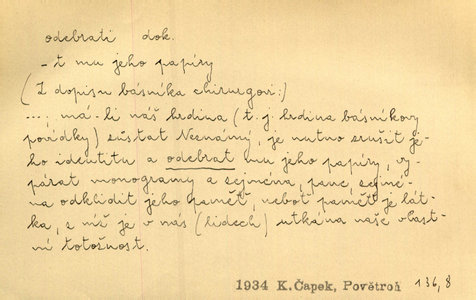 odebrati dok.
-t mu jeho papíry
(Z dopisu básníka chirurgovi:)
...; má-li náš hrdina (t.j. hrdina básníkovy
povídky) zůstat Neznámý, je nutno zrušit je-
ho identitu a odebrat mu jeho papíry, vy-
párat monogramy a zejména, pane, zejmé-
na odklidit jeho paměť, neboť paměť je lát-
ka, z níž je v nás (lidech) utkána naše vlast-
ní totožnost.
1934 K.Čapek, Povětroň 136,8